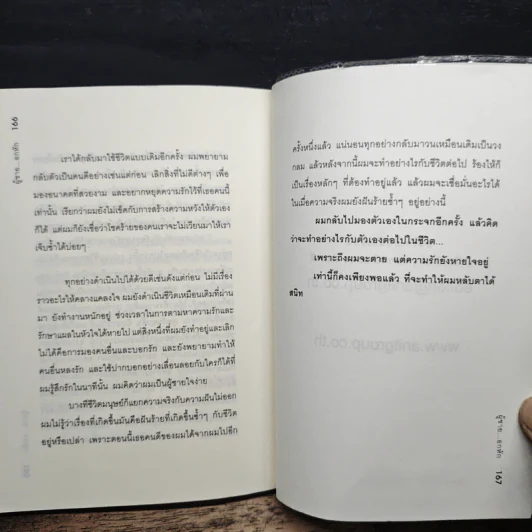 ผู้ชาย...อกหัก 166
เราได้กลับมาใช้ชีวิตแบบเดิมอีกครั้ง ผมพยายาม
กลับตัวเป็นคนดีอย่างเช่นแต่ก่อน เลิกสิ่งที่ไม่ดีต่างๆ เพื่อ
มองอนาคตที่สวยงาม และอยากหยุดความรักไว้ที่เธอคนนี้
เท่านั้น เรียกว่าผมยังไม่เข็ดกับการสร้างความหวังให้ตัวเอง
ก็ได้ แต่ผมก็ยังเชื่อว่าโชคร้ายของคนเราจะไม่เวียนมาให้เรา
เจ็บช้ำได้บ่อยๆ
ทุกอย่างดำเนินไปได้ด้วยดีเช่นดังแต่ก่อน ไม่มีเรื่อง
ราวอะไรให้คลางแคลงใจ ผมยังดำเนินชีวิตเหมือนที่ผ่าน
มา ยังทำงานหนักอยู่ ช่วงเวลาในการตามหาความรักและ
รักษาแผลในหัวใจได้หายไป แต่สิ่งหนึ่งที่ผมยังทำอยู่และเลิก
ไม่ได้คือการมองคนอื่นและบอกรัก และยังพยายามทำให้
คนอื่นหลงรัก และใช้ปากบอกอย่างเลื่อนลอยกับใครก็ได้ที่
ผมรู้สึกรักในนาทีนั้น ผมคิดว่าผมเป็นผู้ชายใจง่าย
บางทีชีวิตมนุษย์ก็แยกความจริงกับความฝันไม่ออก
ผมไม่รู้ว่าเรื่องที่เกิดขึ้นมันคือฝันร้ายที่เกิดขึ้นซ้ำๆ กับชีวิต
อยู่หรือเปล่า เพราะตอนนี้เธอคนดีของผมได้จากผมไปอีก
ครั้งหนึ่งแล้ว แน่นอนทุกอย่างกลับมาวนเหมือนเดิมเป็นวง
กลม แล้วหลังจากนี้ผมจะทำอย่างไรกับชีวิตต่อไป ร้องไห้ก็
เป็นเรื่องหลักๆ ที่ต้องทำอยู่แล้ว แล้วผมจะเชื่อมั่นอะไรได้
ในเมื่อความจริงผมยังฝันร้ายซ้ำๆ อยู่อย่างนี้
ผมกลับไปมองตัวเองในกระจกอีกครั้ง แล้วคิด
ว่าจะทำอย่างไรกับตัวเองต่อไปในชีวิต...
เพราะถึงผมจะตาย แต่ความรักยังหายใจอยู่
เท่านี้ก็คงเพียงพอแล้ว ที่จะทำให้ผมหลับตาได้
สนิท
ผู้ชาย...อกหัก 167